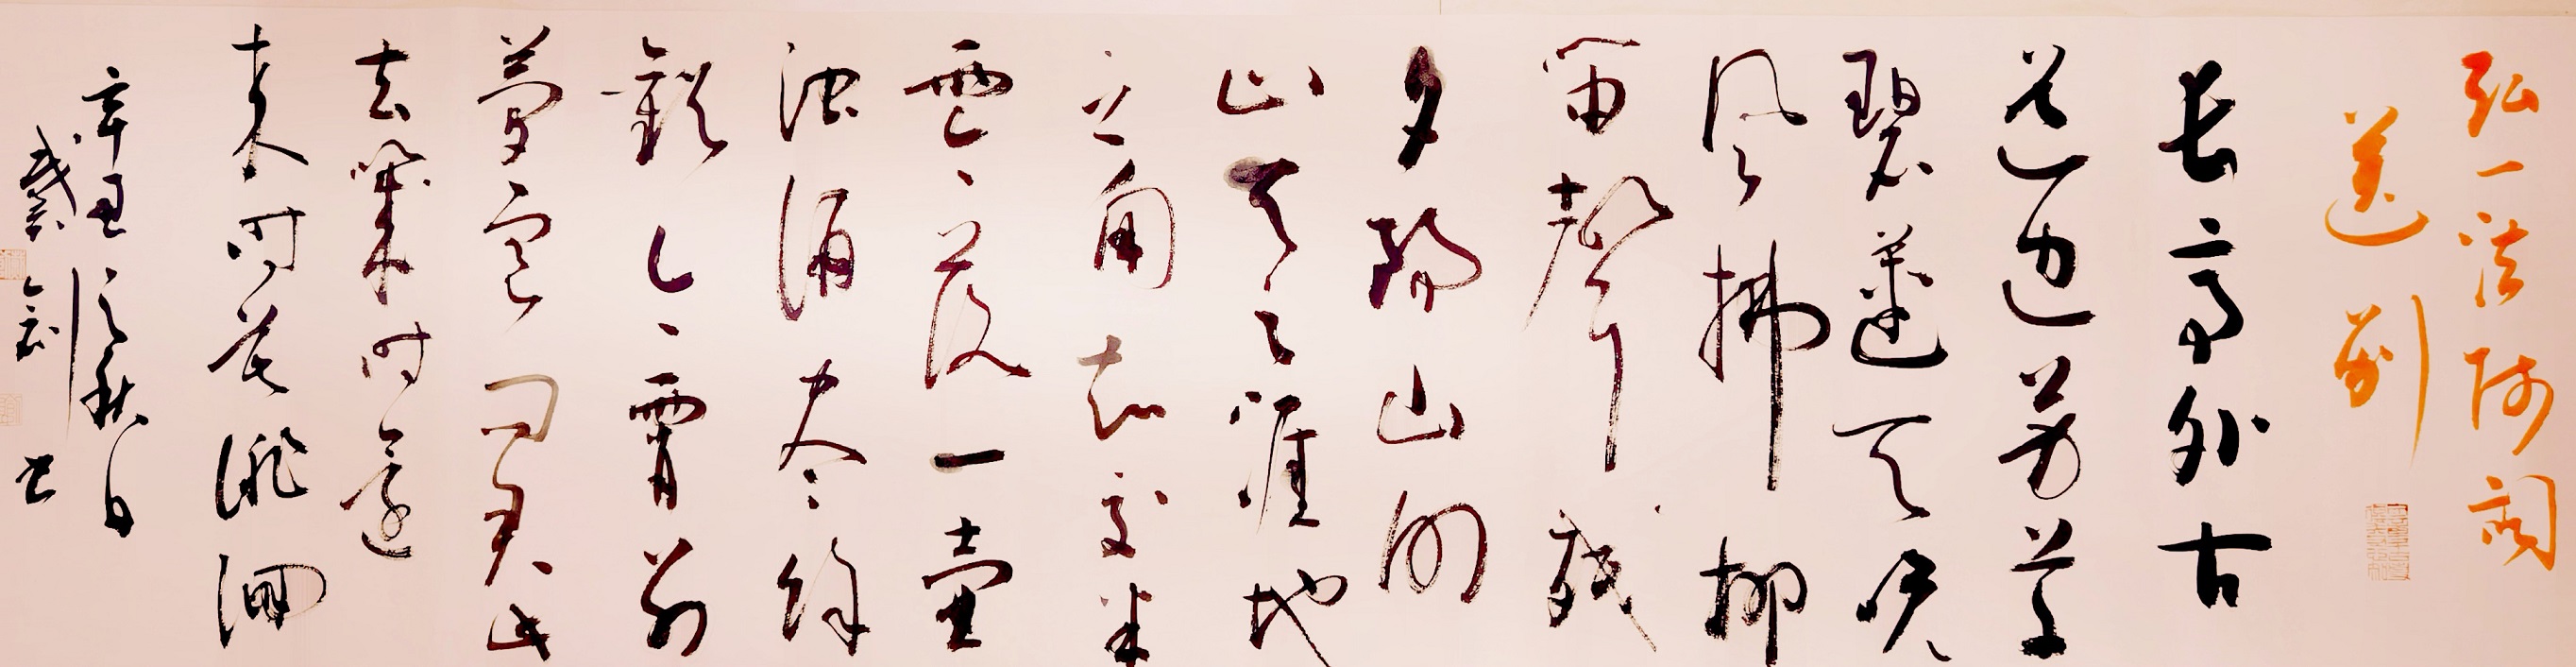 弘一法师词
送别
长亭外古
道边芳草
碧連天晚
风拂柳
笛聲残
夕陽山外
山天之涯地
之角知交半
零落一壺
浊酒尽馀
歡今宵别
夢寒问君此
去幾时還
来时莫徘徊
辛丑之秋日
剑书